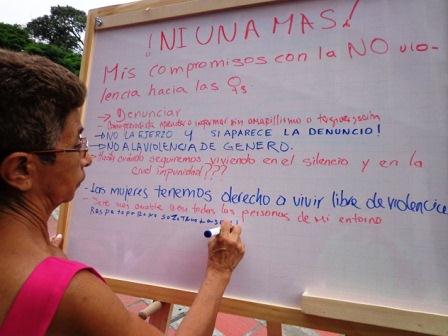 ¡NI UNA MAS!
Mis compromisos con la NO vio-
lencia hacia las ♀s
→ Denunciar
- Comprendida aprender o informar sin amarillismo o tergiversación
→ NO LA EJERZO Y SI APARECE LA DENUNCIO!
→ NO A LA VIOLENCIA DE GENERO.
- Hasta cuándo seguiremos viviendo en el silencio y en la
cruel impunidad???
- Las mujeres tenemos derecho a vivir libre de violencia
- Seré más amable con todas las personas de mi entorno
Respeto